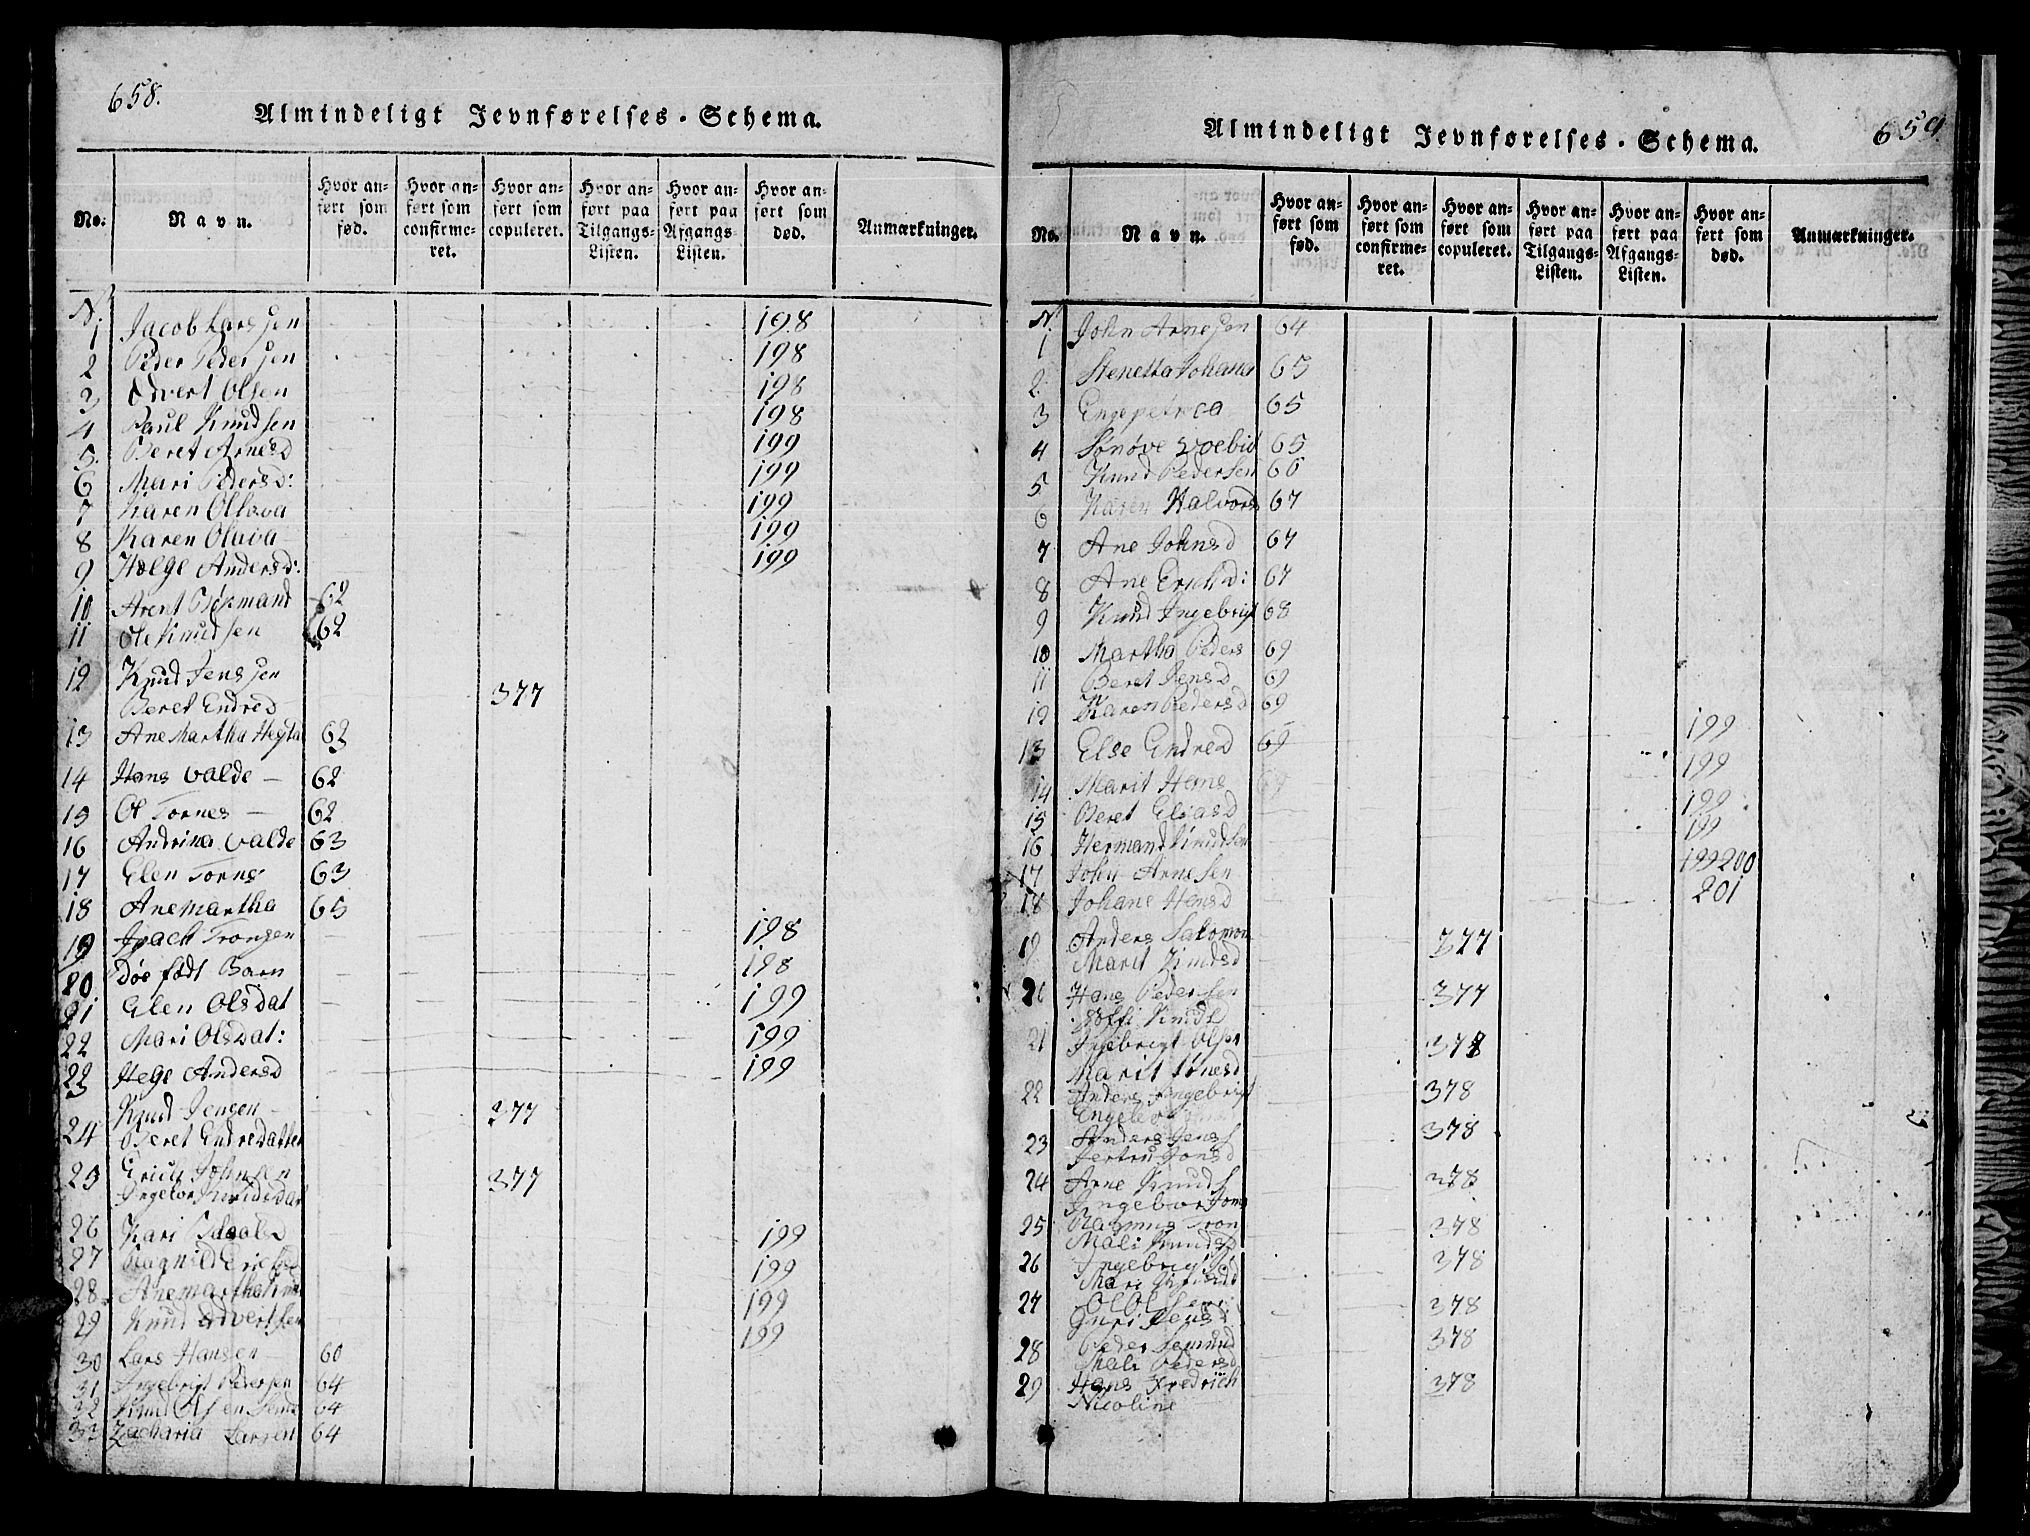 658.
Almindeligt Jevnførelses-Schema.
No.
Navn.
Hvor anført som fød.
Hvor anført som confirmeret.
Hvor anført som copuleret.
Hvor anført paa Tilgangs-Listen.
Hvor anført paa Afgangs-Listen.
Hvor anført som død.
Anmærkninger.
N.
1 Jacob Larssen 198
2 Peder Pedersen 198
3 Edvert Olsen 198
4 Paul Knudsen 198
5. Beret Arnesd 199
6 Mari Pedersd: 199
7 Karen Oltava 199
8 Karen Olava 199
9 Helge Andersd: 199
10 Arent 62
11 Ole Knudsen 62
12 Knud Jenssen
Beret Endred 377
13 Ane Martha 62
14 Hans Valde 62
15 Ol Tornes 62
16 Andrina Valde 63
17 Elen Tornes 63
18 Anemartha 65
19 Tronsen 198
20 Død født Barn 198
21 Elen Olsdat 199
22 Mari Olsdat: 199
23 Hege Andersd 199
24 Knud Jensen 377
Beret Endredatter
25 Erich Johnsen 377
Ingebor Knudsdat
26 Kari 199
27 Ragnild Erics 199
28 Anemartha 199
29 Knud Edvertsen 199
30 Lars Hansen 60
31 Ingebrigt Pedersen 64
32 Knud Olsen 64
33 Zacharia Larsen 64
659.
Almindeligt Jevnførelses-Schema.
No.
Navn.
Hvor anført som fød.
Hvor anført som confirmeret.
Hvor anført som copuleret.
Hvor anført paa Tilgangs-Listen.
Hvor anført paa Afgangs-Listen.
Hvor anført som død.
Anmærkninger.
N.
1 John Arnesen 64
2. Stenetta Johanna 65
3 Engepetrea 65
4 Sønøve 65
5 Knud Pedersen 66
6 Karen Halvors 67
7 Ane Johnsd 67
8 Ane Erichd: 67
9 Knud Ingebrigt 68
10 Martha Peders 69
11 Beret Jensd 69
12 Karen Pedersd 69
13 Else Endred 69 199
14 Marit Hans 69 199
15 Beret Eliasd 199
16 Hermand Knudsen 199
17 John Arnesen 199 200
18 Johane Hansd 201
19 Anders Salomon 377
Marit
20 Hans Pedersen 377
Knudsd
21 Ingebrigt Olsen 378
Marit
22 Anders Ingebrigt 378
23 Anders Jens 378
Jertru Jonsd
24 Arne Knuds 378
Ingebor Jons
25 Rasmus Tron 378
Mali Knudsd
26 Ingebrigt 378
Mari
27 Ol Olsen 378
Guri Jensd
28 Peder 378
Mali Pedersd
29 Hans Fredrich 378
Nicoline